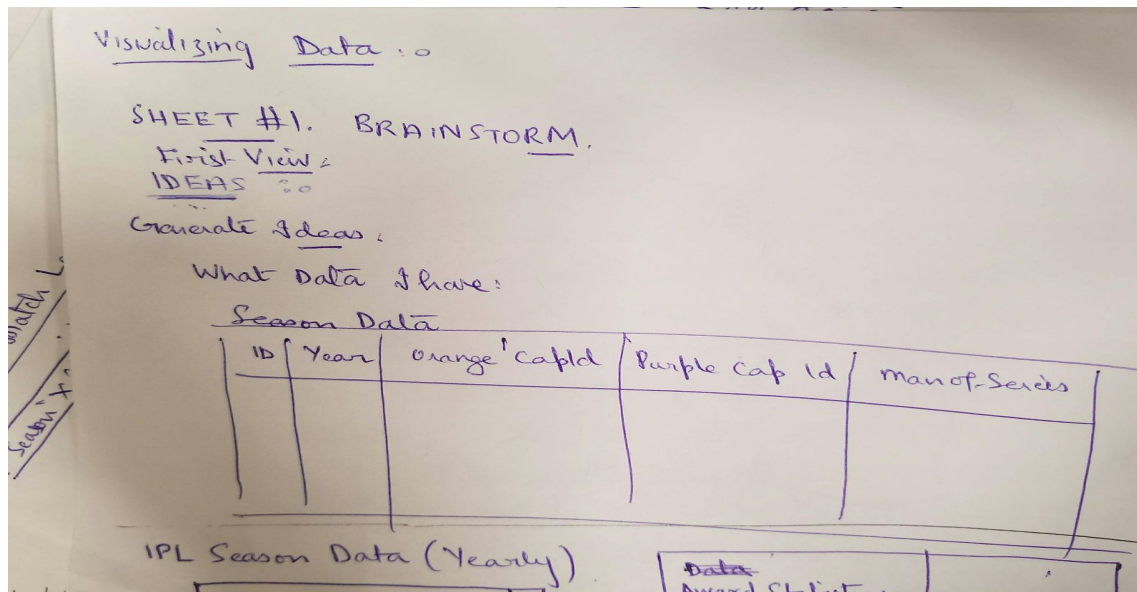 Visualizing Data :
SHEET #1. BRAINSTORM.
First View :
IDEAS :
Generate Ideas.
What Data I have:
Season Data
ID Year Orange Cap Id Purple Cap Id Man of-Series
IPL Season Data (Yearly)
Data
Award
Match
Season